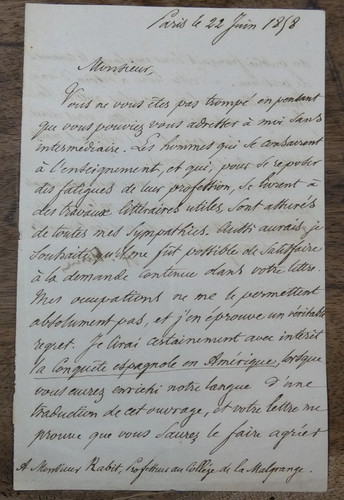 Paris le 22 Juin 1858
Monsieur,
Vous ne vous êtes pas trompé en pensant
que vous pouviez vous adresser à moi sans
intermédiaire. Les hommes qui se consacrent
à l'enseignement, et qui, pour se reposer
des fatigues de leur profession, se livrent à
des travaux littéraires utiles, sont assurés
de toutes mes sympathies. Aussi aurais-je
souhaité qu'il me fut possible de satisfaire
à la demande contenue dans votre lettre.
Mes occupations ne me le permettent
absolument pas, et j'en éprouve un véritable
regret. Je lirai certainement avec intérêt
la Conquête espagnole en Amérique, lorsque
vous aurez enrichi notre langue d'une
traduction de cet ouvrage, et votre lettre me
prouve que vous saurez le faire agréer
A Monsieur Rabit, Professeur au Collège de la Malgrange.